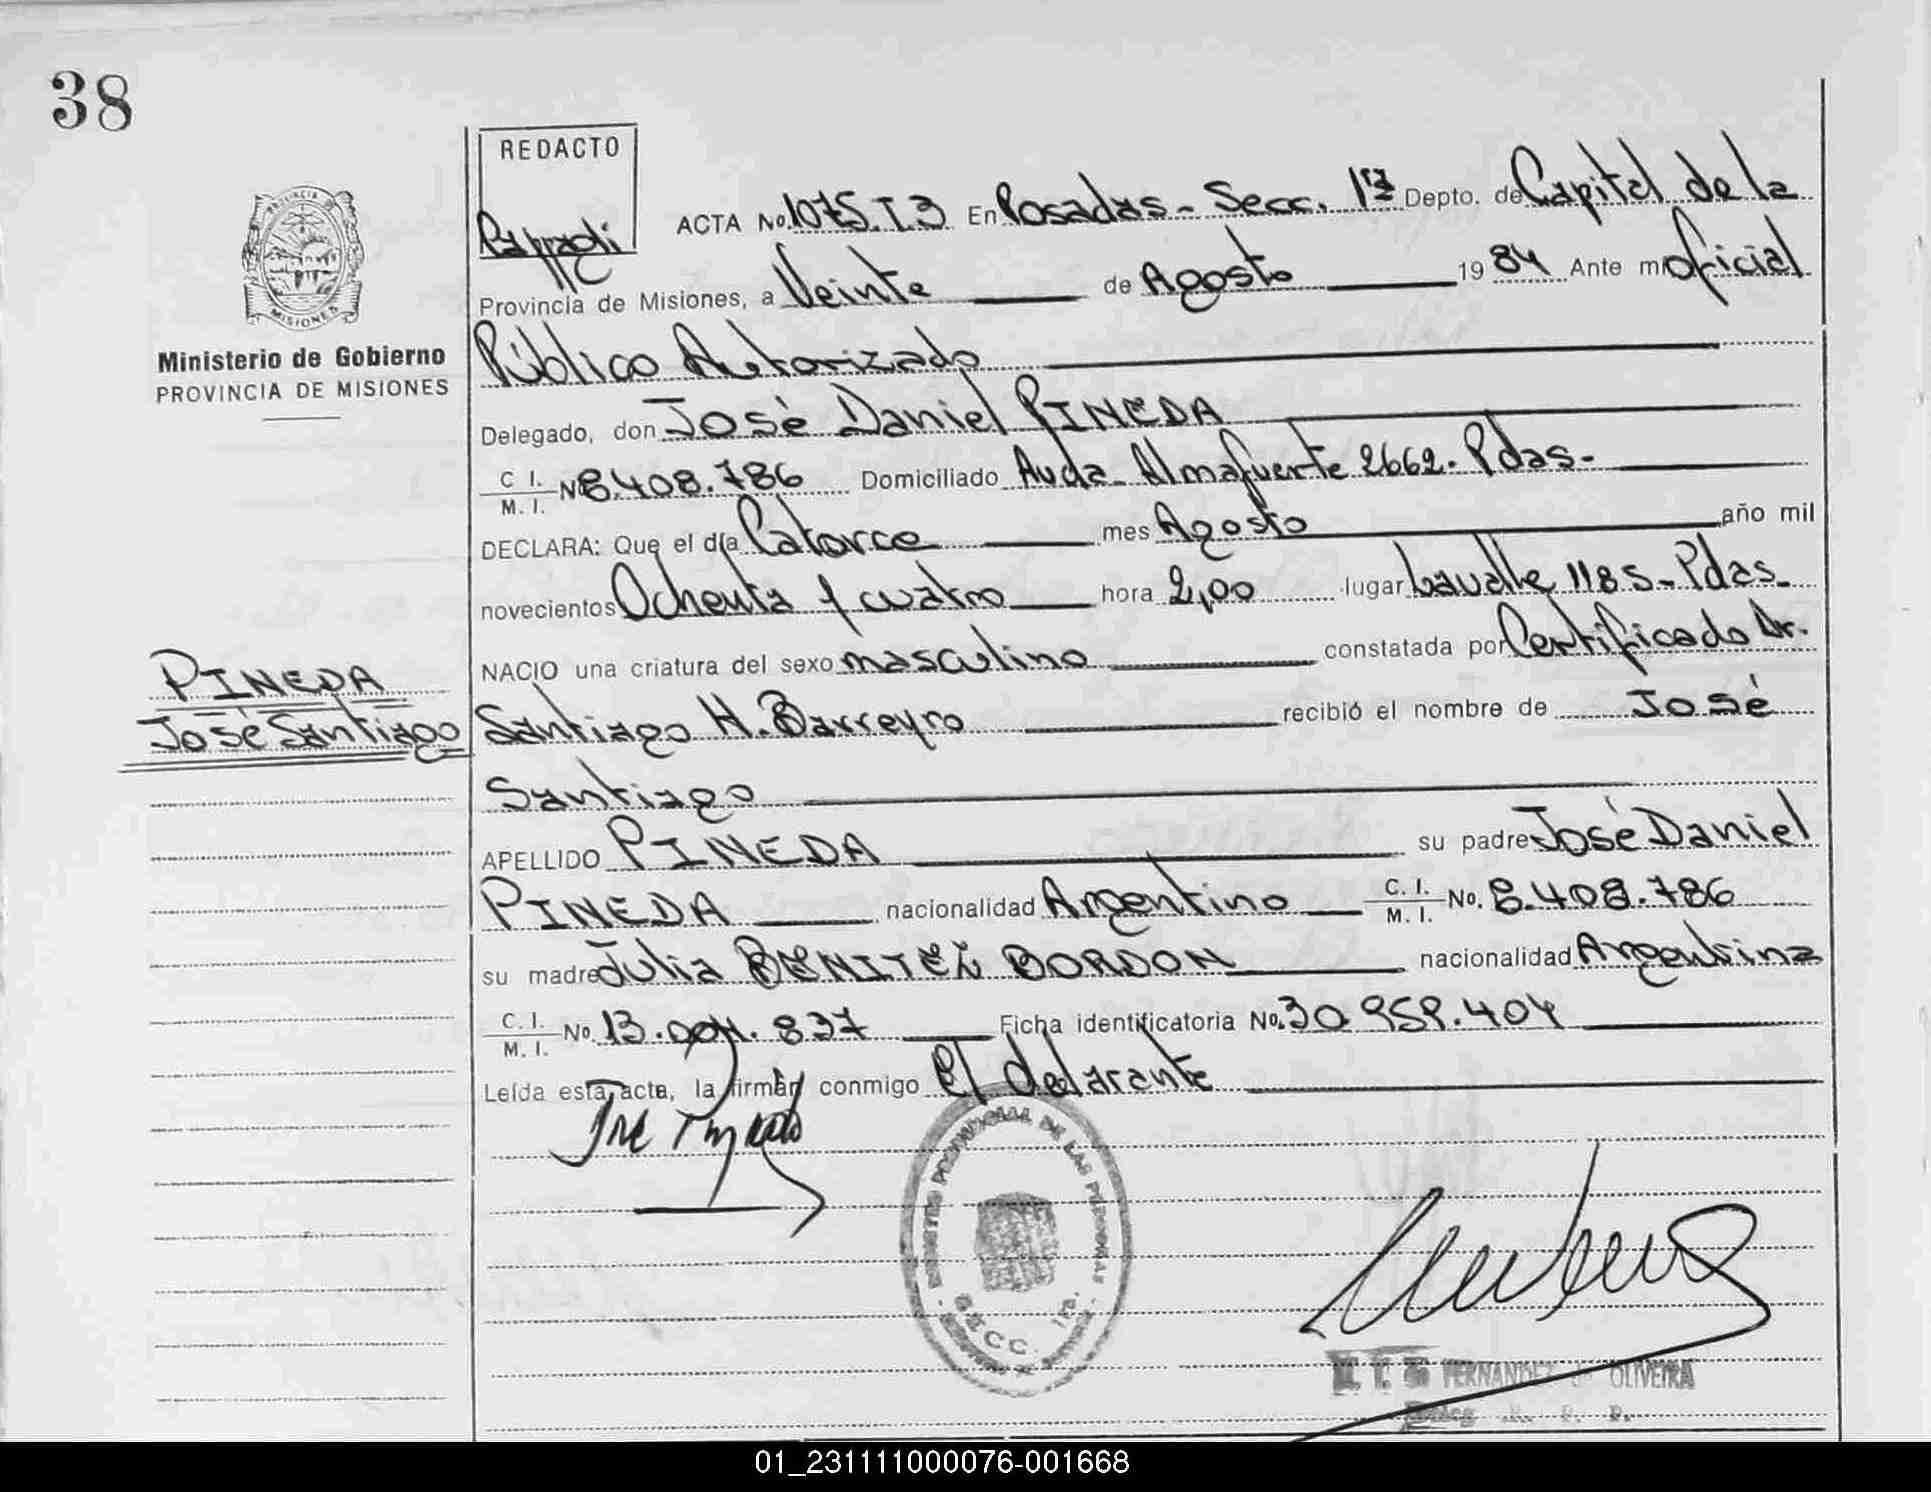 38
REDACTO
ACTA No. 1075. T. 3 En Posadas - Secc. 1ra Depto. de Capital de la
Provincia de Misiones, a Veinte de Agosto 1984 Ante mi Oficial
Público Autorizado
Delegado, don José Daniel PINEDA
C. I. M. I. No 8.408.786 Domiciliado Avda. Almafuerte 2662. Pdas.
DECLARA: Que el día Catorce mes Agosto año mil
novecientos Ochenta y cuatro hora 2,00 lugar Lavalle 1185 - Pdas.
NACIO una criatura del sexo masculino constatada por Certificado Dr.
Santiago H. Barreyro recibió el nombre de José
Santiago
APELLIDO PINEDA su padre José Daniel
PINEDA nacionalidad Argentino C. I. M. I. No. 8.408.786
su madre Julia BENITEZ BORDON nacionalidad Argentina
C. I. M. I. No. 13.004.837 Ficha identificatoria No. 30.959.404
Leída esta acta, la firman conmigo El delarante
PROVINCIA
MISIONES
Ministerio de Gobierno
PROVINCIA DE MISIONES
PINEDA
José Santiago
REGISTRO PROVINCIAL DE LAS PERSONAS
SECC. 1ra.
FERNANDEZ OLIVEIRA
01_231111000076-001668